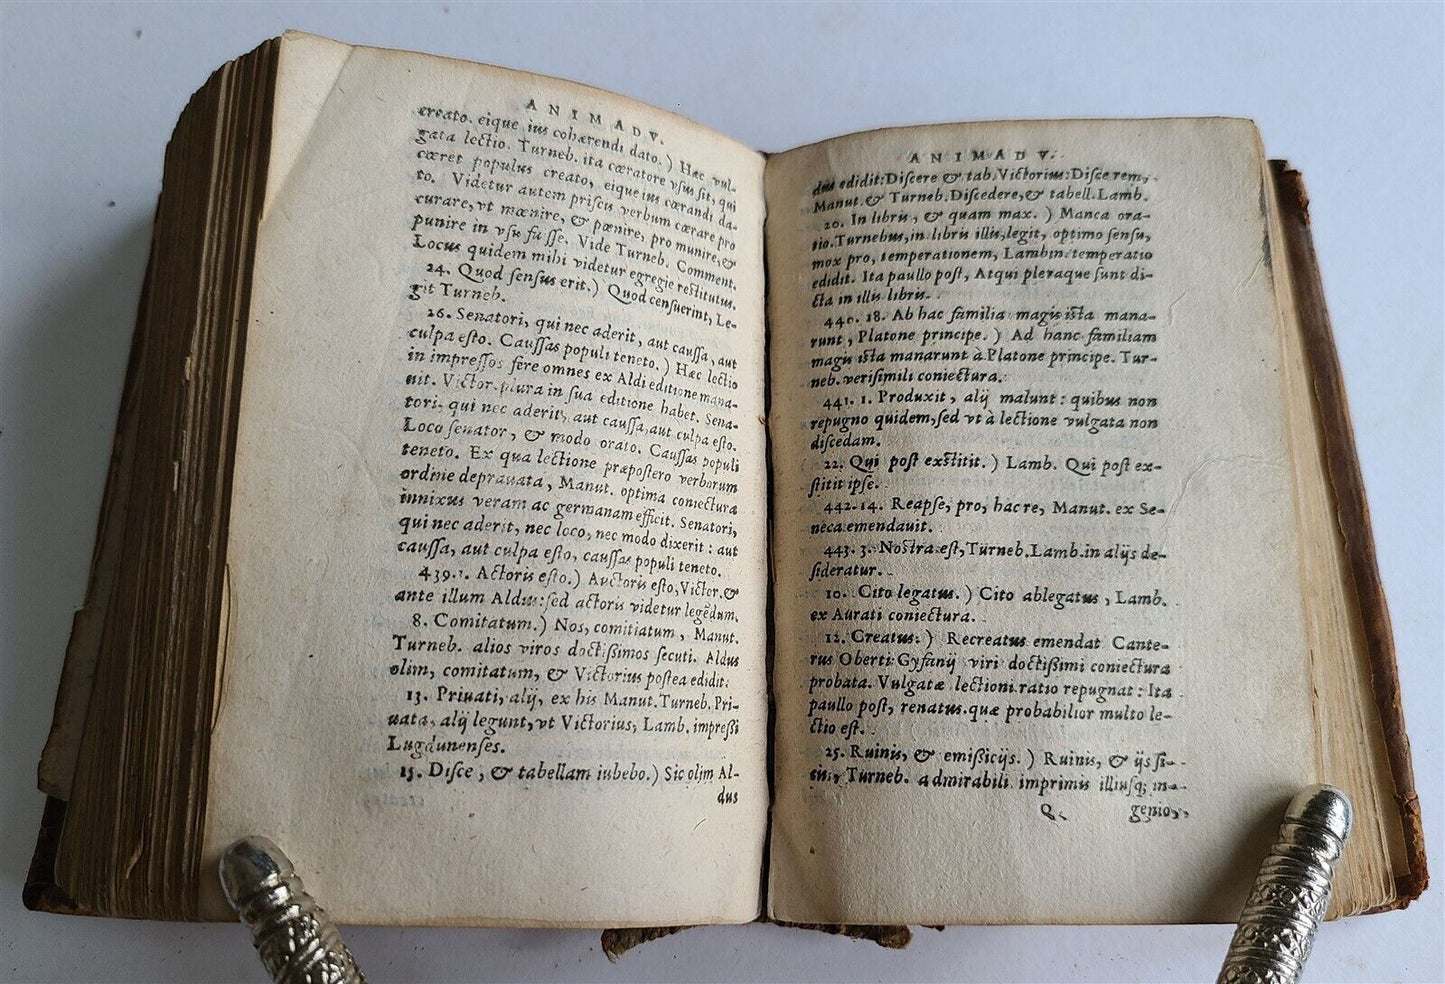 ANIMADV.
creato. eique ius cohærendi dato.) Hæc vul-
gata lectio. Turneb. ita cœratore vsus sit, qui
cœret populus creato, eique ius cœrandi da-
to. Videtur autem priscis verbum cœrare pro
curare, vt mœnire, & pœnire, pro munire, &
punire in vsu fuisse. Vide Turneb. Comment.
Locus quidem mihi videtur egregie restitutus.
24. Quod sensus erit.) Quod censuerint, Le-
git Turneb.
26. Senatori, qui nec aderit, aut caussa, aut
culpa esto. Caussas populi teneto.) Hæc lectio
in impressos fere omnes ex Aldi editione mana-
uit. Victor. plura in sua editione habet. Sena-
tori, qui nec aderit, aut caussa, aut culpa esto.
Loco senator, & modo orato. Caussas populi
teneto. Ex qua lectione præpostero verborum
ordine deprauata, Manut. optima coniectura
innixus veram ac germanam efficit. Senatori,
qui nec aderit, nec loco, nec modo dixerit: aut
caussa, aut culpa esto, caussas populi teneto.
439. 1. Actoris esto.) Auctoris esto, Victor. &
ante illum Aldus: sed actoris videtur legẽdum.
8. Comitatum.) Nos, comitiatum, Manut.
Turneb. alios viros doctißimos secuti. Aldus
olim, comitatum, & Victorius postea edidit:
13. Priuati, alij, ex his Manut. Turneb. Pri-
uata, alij legunt, vt Victorius, Lamb. impreßi
Lugdunenses.
15. Disce, & tabellam iubebo.) Sic olim Al-
dus
ANIMADV.
dus edidit: Discere & tab. Victorius: Disce rem,
Manut. & Turneb. Discedere, & tabell. Lamb.
20. In libris, & quam max.) Manca ora-
tio. Turnebus, in libris illis, legit, optimo sensu,
mox pro, temperationem, Lambin. temperatio
edidit. Ita paullo post, Atqui pleraque sunt di-
cta in illis libris.
440. 18. Ab hac familia magis ista mana-
runt, Platone principe.) Ad hanc familiam
magis ista manarunt à Platone principe. Tur-
neb. verisimili coniectura.
441. 1. Produxit, alij malunt: quibus non
repugno quidem, sed vt à lectione vulgata non
discedam.
22. Qui post exstitit.) Lamb. Qui post ex-
stitit ipse.
442. 14. Reapse, pro, hac re, Manut. ex Se-
neca emendauit.
443. 3. Nostra est, Turneb. Lamb. in alijs de-
sideratur.
10. Cito legatus.) Cito ablegatus, Lamb.
ex Aurati coniectura.
12. Creatus.) Recreatus emendat Cante-
rus Oberti Gyfanij viri doctißimi coniectura
probata. Vulgatæ lectioni ratio repugnat: Ita
paullo post, renatus. quæ probabilior multo le-
ctio est.
25. Ruinis, & emißicijs.) Ruinis, & ijs si-
tis, Turneb. admirabili imprimis illiusq; in-
Q. genio,